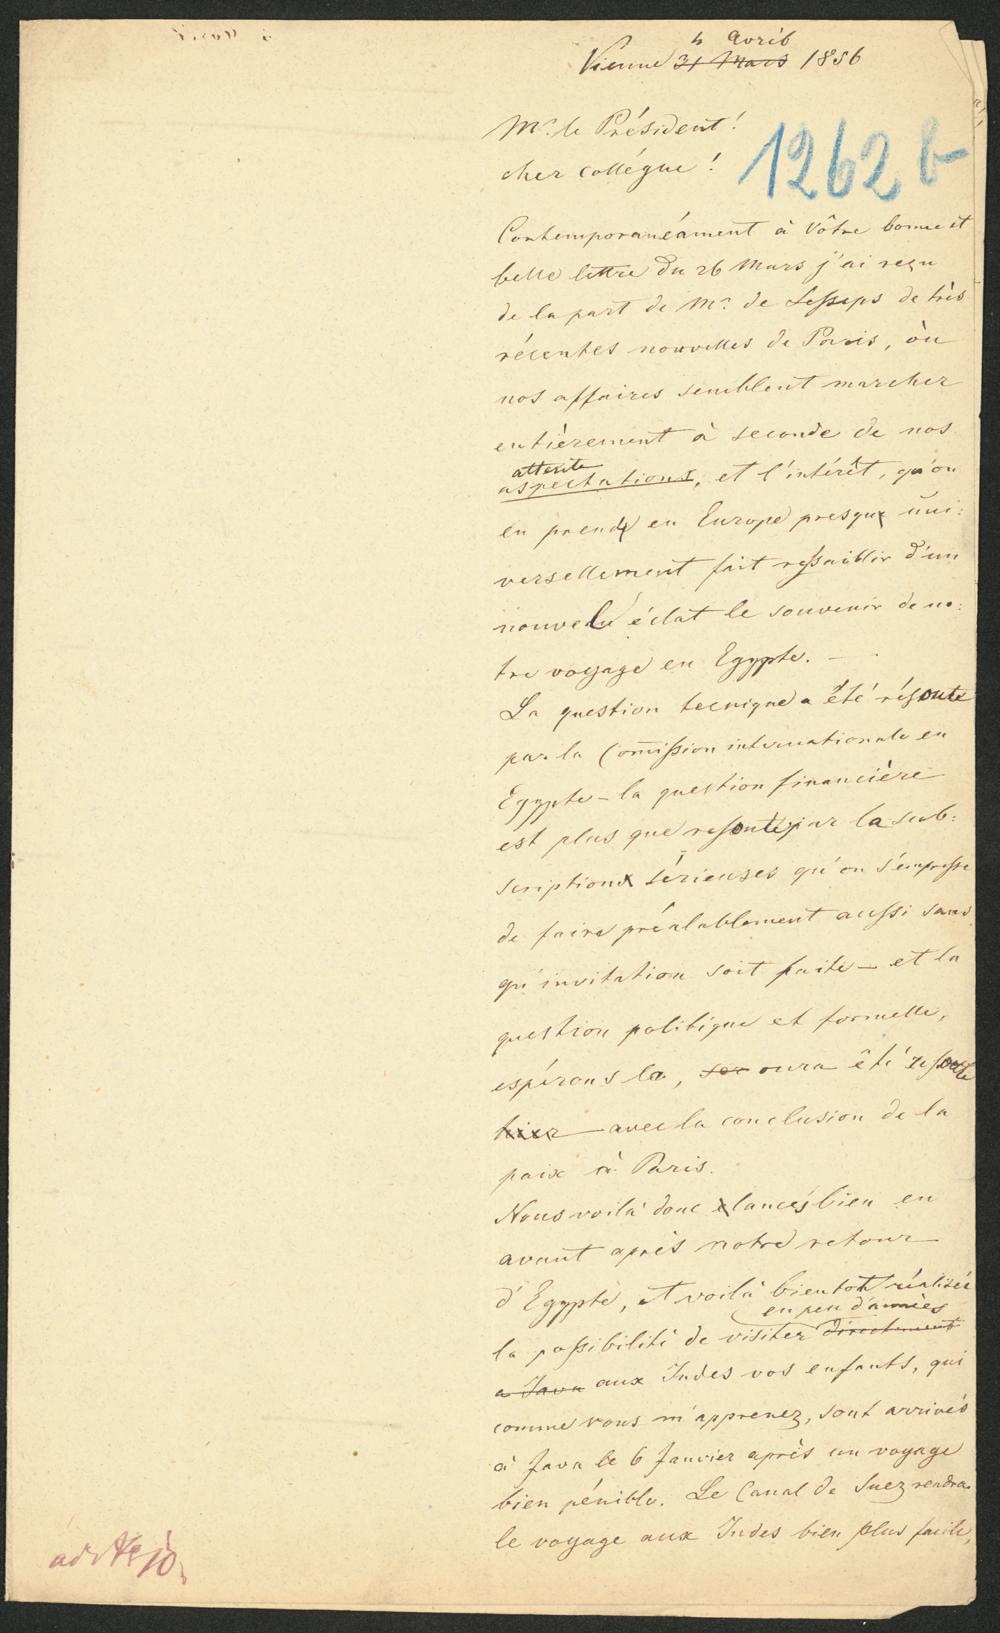 4 Avril
Vienne 31 Mars 1856
Mr. le Président!
cher collégue!
1262 b
Contemporanéament à Vôtre bonne et
belle lettre du 26 Mars j'ai reçu
de la part de Mr. de Lesseps de très
récentes nouvelles de Paris, òu
nos affaires semblent marcher
entièrement à seconde de nos
attente
aspectations, et l'intérêt, qu'on
en prend en Europe presque uni:
versellement fait ressaiblir d'un
nouvel éclat le souvenir de no:
tre voyage en Egypte. —
La question tecnique a été résoute
par la Comission internationale en
Egypte — la question financière
est plus que resoute par la sub:
scription sérieuses qu'on s'empresse
de faire préalablement aussi sans
qu'invitation soit faite — et la
question politique et formelle,
espérons la, ser aura été resoute
hier avec la conclusion de la
paix à Paris.
Nous voilà donc elancés bien en
avant après notre retour
d'Egypte, et voilà bientot réalisée
en peu d'années
la possibilité de visiter directement
a Java aux Indes vos enfants, qui
comme vous m'apprenez, sont arrivés
à Java le 6 Janvier après un voyage
bien pénible. Le Canal de Suez rendra
le voyage aux Indes bien plus facile,
ad No 10